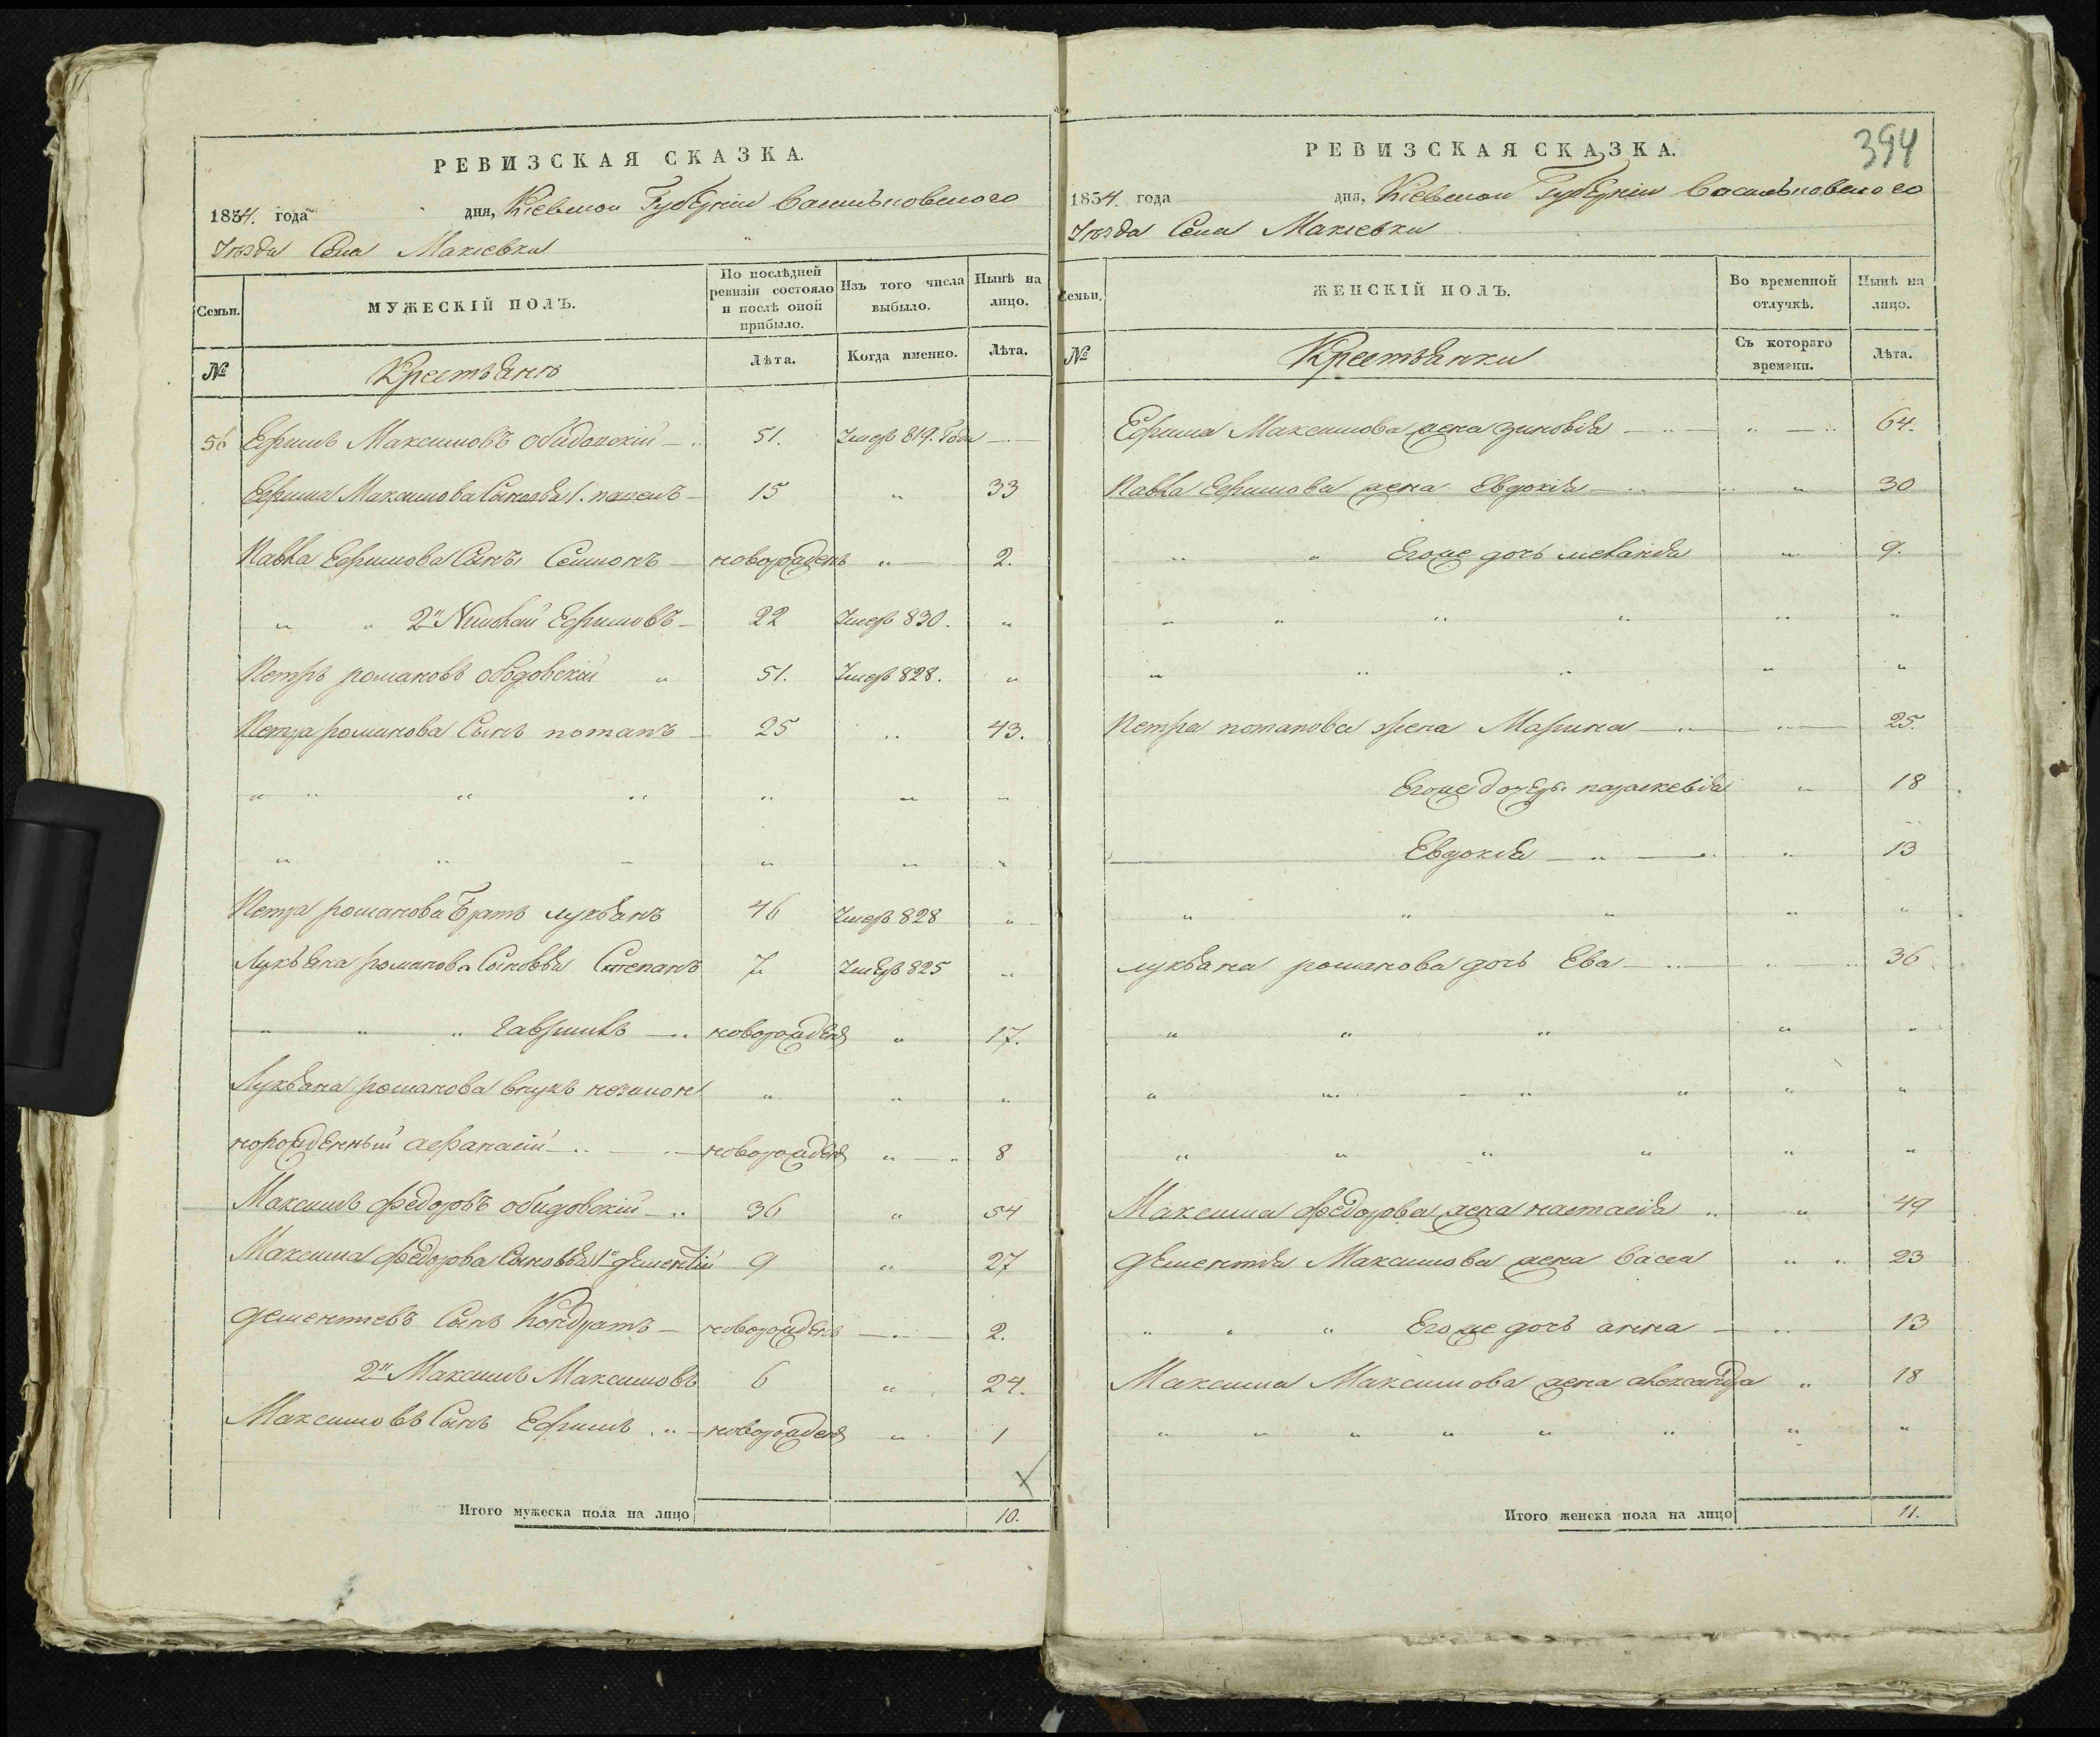 РЕВИЗСКАЯ СКАЗКА.
1834. года дня, Кіевской Губерніи Васильковского
Уезда Села Макіевки
Семьи. МУЖЕСКІЙ ПОЛЪ. По послѣдней ревизіи состояло и послѣ оной прибыло. Изъ того числа выбыло. Нынѣ на лицо.
№ Крестьянъ Лѣта. Когда именно. Лѣта.
56 Ефимъ Максимовъ 51. Умеръ 819. Года
Ефима Максимова Сыновья 1. павелъ 15 " 33
Павла Ефимова Сынъ Семионъ новорожденъ " 2.
" " 2й Николай Ефимовъ 22 Умеръ 830. "
Петръ романовъ обыдовскій " 51. Умеръ 828. "
Петра романова Сынъ потапъ 25 " 43.
" " " " " " "
" " " " " "
Петра романова Братъ лукьянъ 46 Умеръ 828 "
Лукьяна романова Сыновья Степанъ 7 Умеръ 825 "
" " " Гаврилъ новорожденъ " 17.
Лукьяна романова внукъ незаконо " " "
норожденный афанасій новорожденъ " " 8
Максимъ федоровъ обыдовскій 36 " 54
Максима федорова Сыновья 1й дементій 9 " 27
дементиевъ Сынъ Кондратъ новорожденъ " 2.
2й Максимъ Максимовъ 6 " 24.
Максимовъ Сынъ Ефимъ " новорожденъ " 1
Итого мужеска пола на лицо 10.
394
РЕВИЗСКАЯ СКАЗКА.
1834. года дня, Кіевской Губерніи Васильковского
Уезда Села Макіевки
Семьи. ЖЕНСКІЙ ПОЛЪ. Во временной отлучкѣ. Нынѣ на лицо.
№ Крестьянки Съ котораго времени. Лѣта.
Ефима Максимова жена зиновья " " 64.
Павла Ефимова жена Евдокія " " 30
" " Егоже дочь меланья " 9.
" " " " " "
" " " " "
Петра потапова жена Марина " " 25.
Егоже дочери параскевія " 18
Евдокія " " 13
" " " " "
лукьяна романова дочь Ева " " 36
" " " " "
" " " " " "
" " " " " "
Максима федорова жена настасія " " 49
дементія Максимова жена васса " " 23
" " " Егоже дочь анна " 13
Максима Максимова жена александра " 18
" " " " " " " "
Итого женска пола на лицо 11.